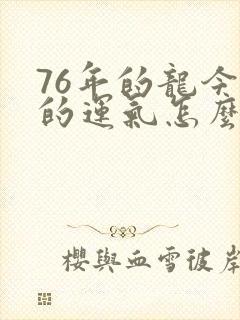 76年的龍今
的運氣怎麼
櫻與血雪彼岸